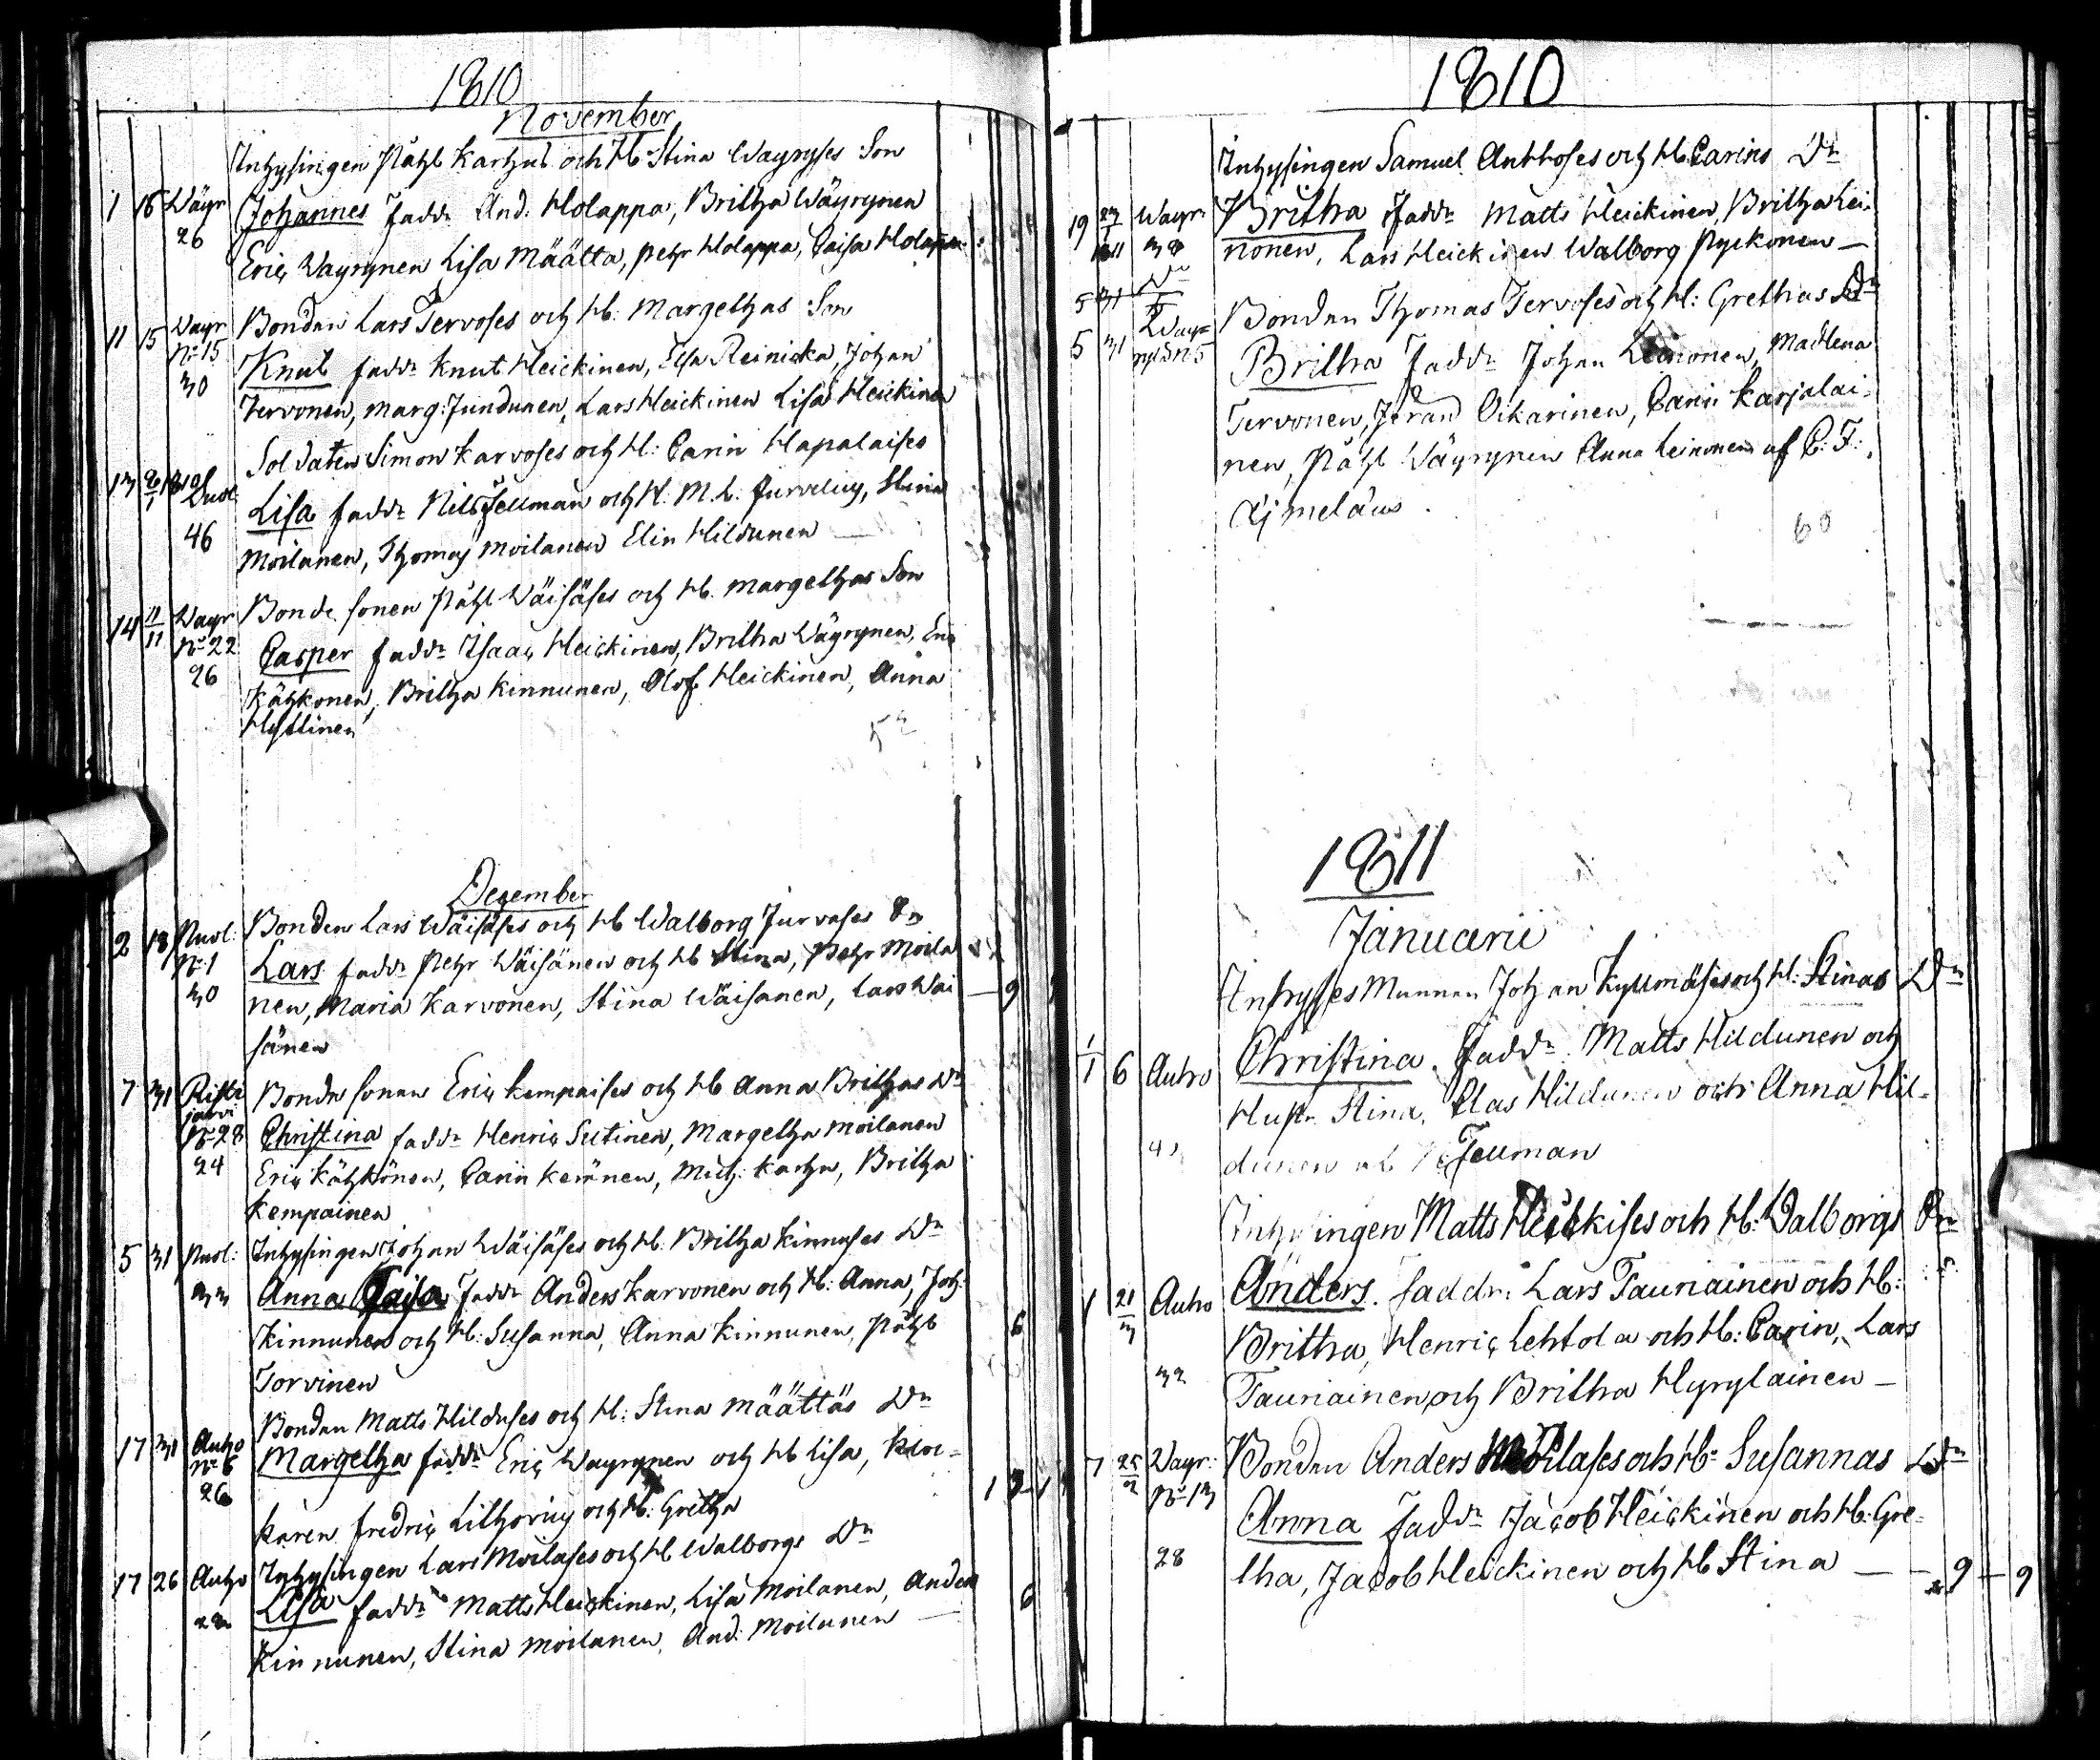 1810
November
Inhysingen Påhl Karhus och H. Stina Wäyryses Son
1 16 Wäyr Johannes fadd: And: Holappa, Britha Wäyrynen
26 Eric Wäyrynen Lisa Määtta, Pehr Holappa, Caisa Holappa
Bonden Lars Tervoses och H. Margethas Son
11 15 Wäyr No 15 Knut fadd: Knut Heickinen, Reinicka, Johan
30 Tervonen, Marg: Jundunen, Lars Heickinen Lisa Heickinen
Soldaten Simon Karvoses och H: Carin Hapalaises
13 1810 Lisa fadd: Nils Fellman och H. M. L. Stina
46 Moilanen, Thomas Moilanen Elin Hildunen
Bonde sonen Påhl Wäisäses och H. Margethas Son
14 11/11 Wäyr No 22 Casper fadd: Isaac Heickinen, Britha Wäyrynen, Eric
26 Kähkönen, Britha Kinnunen, Olof Heickinen, Anna
Hyttinen
December
Bonden Lars Wäisäses och H. Walborg Jurvases
2 18 Puol: No 1 Lars fadd: Pehr Wäisänen och H. Stina, Pehr Moila
30 nen, Maria Karvonen, Stina Wäisänen, Lars Wäi — 9
sänen
7 31 Risti Bonde sonen Eric Kempaises och H. Anna Brithas Dr
jarvi No 28 Christina fadd: Henric Sutinen, Margetha Moilanen
24 Eric Kähkönen, Carin Keränen, Mich: Karhu, Britha
Kempainen
5 31 Puol: Inhysingen Johan Wäisäses och H. Britha Kinnuses Dr
33 Anna Caisa fadd: Anders Karvonen och H: Anna, Joh:
Kinnunen och H: Susanna, Anna Kinnunen, Påhl 6
Torvinen
Bonden Matts Hilduses och H: Stina Määttäs Dr
17 31 Autio No 6 Margetha fadd: Eric Wäyrynen och H. Lisa, Kloc=
26 karen Fredric Lithovius och H: Gretha
Inhysingen Lars Moilases och H. Walborgs Dr
17 26 Autio Lisa fadd: Matts Heickinen, Lisa Moilanen, Anders
28 Kinnunen, Stina Moilanen, And: Moilanen — 6
1810
Inhysingen Samuel Anttoses och H. Carins Dr
19 Wäyr: Britha fadd: Matts Heickinen, Britha Lei=
38 nonen, Lars Heickinen Walborg Pyckönen —
5 31 Bonden Thomas Tervoses och H: Grethas Dr
5 31 Britha fadd: Johan Leinonen, Madlena
Tervonen, Jöran Oikarinen, Carin Karjalai=
nen, Påhl Wäyrynen Anna Leinonen af C: F:
Ajmelæus
60
1811
Januarii
Inhyses Mannen Johan Kyllmäses och H: Stinas Dr
1/1 6 Autio Christina. fadd: Matts Hildunen och
Hustr Stina, Clas Hildunen och Anna Hil=
dunen Fellman
Inhysingen Matts Heickises och H: Walborgs
1 21/3 Autio Anders. faddr: Lars Tauriainen och H:
Britha, Henric Lehtola och H: Carin, Lars
32 Tauriainen och Britha Hyrylainen —
7 25/2 Wäyr: Bonden Anders Moilases och H: Susannas Dr
No 13 Anna fadd: Jacob Heickinen och H. Gre=
28 tha, Jacob Heickinen och H. Stina — 9 — 9